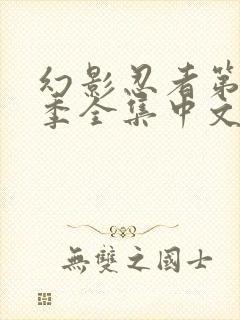 幻影忍者第
季全集中文
無雙之國士